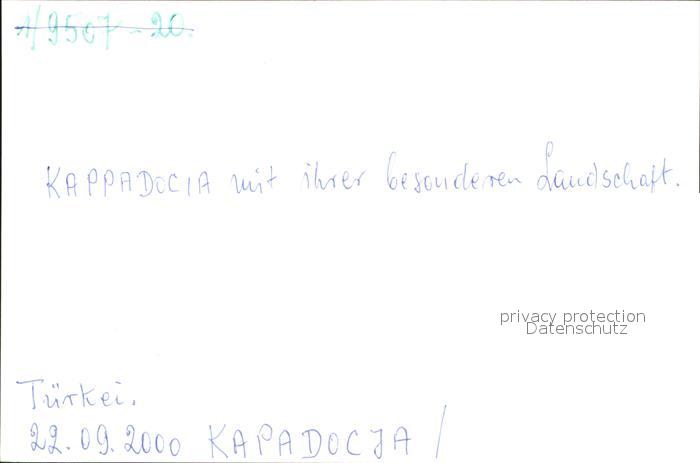 1/9507-20.
KAPPADOCIA mit ihrer besonderen Landschaft.
privacy protection
Datenschutz
Türkei.
22.09.2000 KAPADOCJA /